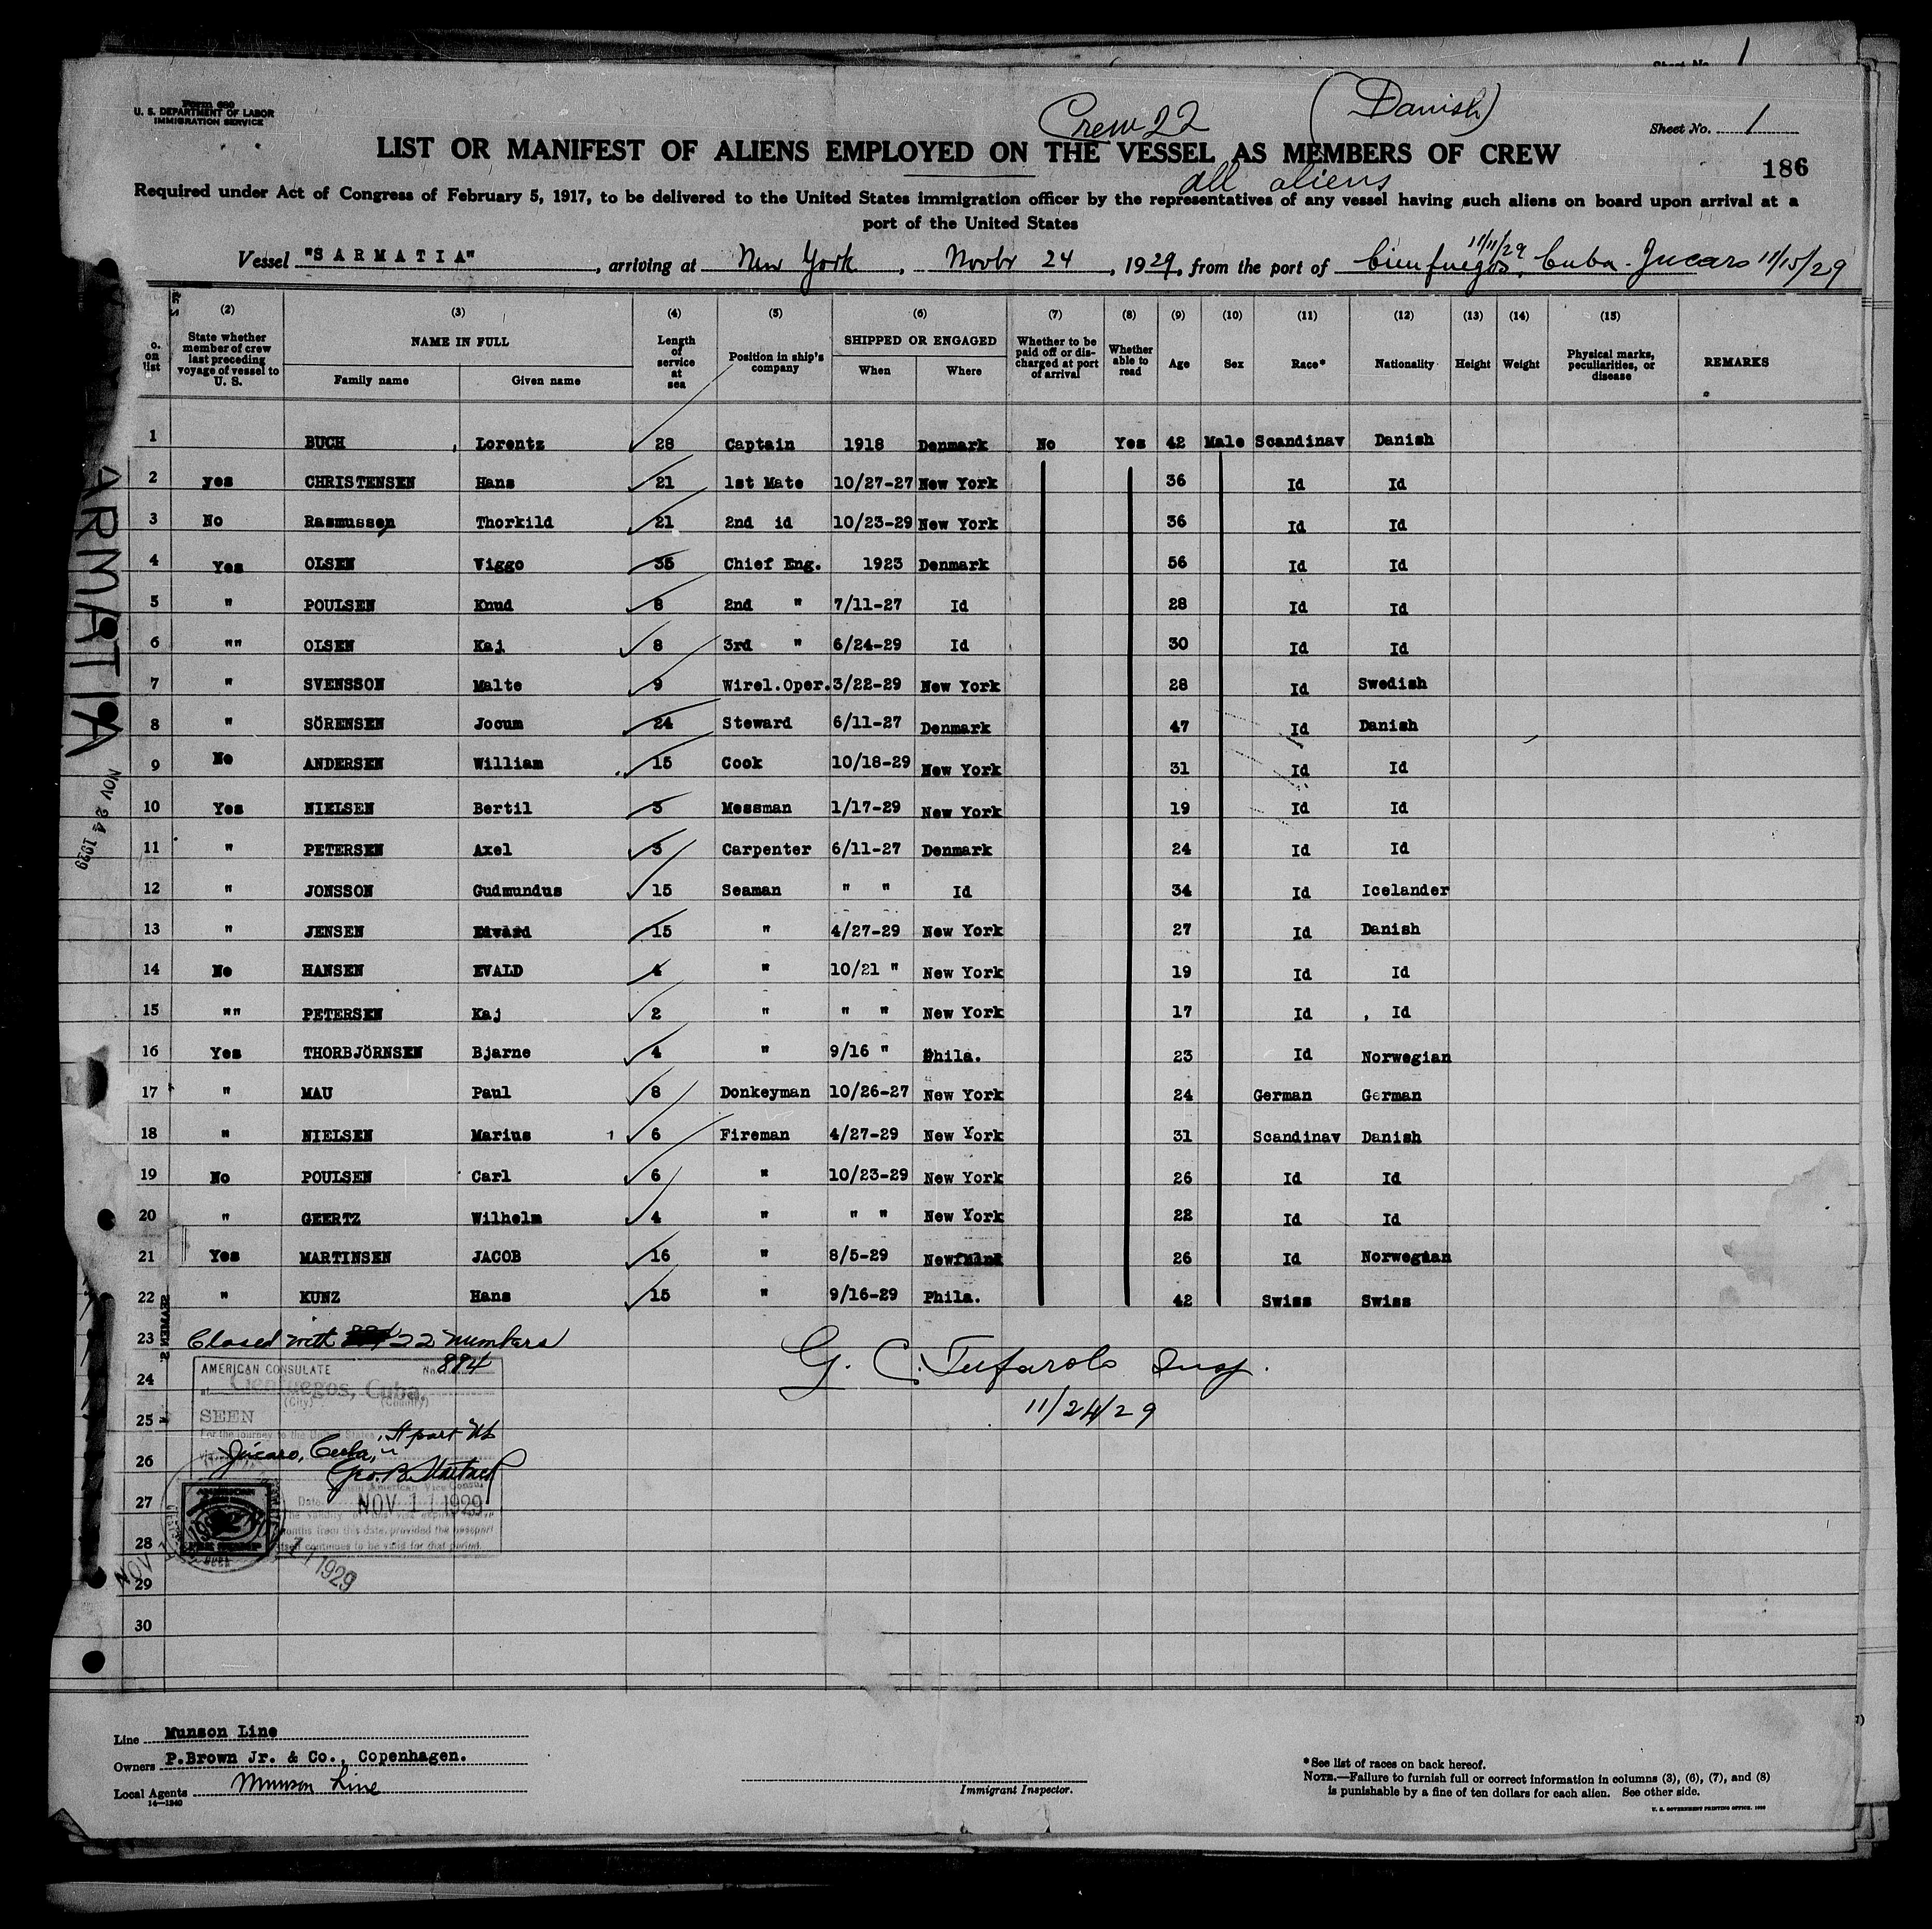 Sheet No. 1
Form 680
U. S. DEPARTMENT OF LABOR
IMMIGRATION SERVICE
Crew 22 (Danish)
Sheet No. 1
LIST OR MANIFEST OF ALIENS EMPLOYED ON THE VESSEL AS MEMBERS OF CREW
186
all aliens
Required under Act of Congress of February 5, 1917, to be delivered to the United States immigration officer by the representatives of any vessel having such aliens on board upon arrival at a
port of the United States
Vessel "SARMATIA", arriving at New York, Novbr 24, 1929, from the port of Cienfuegos, 11/11/29 Cuba - Jucaro 11/15/29
(2) (3) (4) (5) (6) (7) (8) (9) (10) (11) (12) (13) (14) (15)
o. on list State whether member of crew last preceding voyage of vessel to U. S. NAME IN FULL Length of service at sea Position in ship's company SHIPPED OR ENGAGED Whether to be paid off or discharged at port of arrival Whether able to read Age Sex Race* Nationality Height Weight Physical marks, peculiarities, or disease REMARKS
Family name Given name When Where
1 BUCH, Lorentz 28 Captain 1918 Denmark No Yes 42 Male Scandinav Danish
2 yes CHRISTENSEN Hans 21 1st Mate 10/27-27 New York 36 Id Id
3 No Rasmussen Thorkild 21 2nd id 10/23-29 New York 36 Id Id
4 Yes OLSEN Viggo 35 Chief Eng. 1923 Denmark 56 Id Id
5 " POULSEN Knud 8 2nd " 7/11-27 Id 28 Id Id
6 "" OLSEN Kaj 8 3rd " 6/24-29 Id 30 Id Id
7 " SVENSSON Malte 9 Wirel.Oper. 3/22-29 New York 28 Id Swedish
8 " SÖRENSEN Jocum 24 Steward 6/11-27 Denmark 47 Id Danish
9 No ANDERSEN William 15 Cook 10/18-29 New York 31 Id Id
10 Yes NIELSEN Bertil 3 Messman 1/17-29 New York 19 Id Id
11 " PETERSEN Axel 3 Carpenter 6/11-27 Denmark 24 Id Id
12 " JONSSON Gudmundus 15 Seaman " " Id 34 Id Icelander
13 " JENSEN Edvard 15 " 4/27-29 New York 27 Id Danish
14 No HANSEN EVALD 4 " 10/21 " New York 19 Id Id
15 "" PETERSEN Kaj 2 " " " New York 17 Id Id
16 Yes THORBJÖRNSEN Bjarne 4 " 9/16 " Phila. 23 Id Norwegian
17 " MAU Paul 8 Donkeyman 10/26-27 New York 24 German German
18 " NIELSEN Marius 6 Fireman 4/27-29 New York 31 Scandinav Danish
19 No POULSEN Carl 6 " 10/23-29 New York 26 Id Id
20 " GEERTZ Wilhelm 4 " " " New York 22 Id Id
21 Yes MARTINSEN JACOB 16 " 8/5-29 26 Id Norwegian
22 " KUNZ Hans 15 " 9/16-29 Phila. 42 Swiss Swiss
23 Closed with 22 members
24
25
26
27
28
29
30
AMERICAN CONSULATE No. 894
at Cienfuegos, Cuba.
(City) (Country)
SEEN
For the journey to the United States
via Jucaro, Cuba,
Geo. B.
American Vice Consul
Date NOV 11 1929
The validity of this visa expires
months from this date, provided the passport
itself continues to be valid for that period.
NOV 11 1929
G. C. Tufarolo Insp.
11/24/29
ARMATIA
NOV 24 1929
Line Munson Line
Owners P.Brown Jr. & Co., Copenhagen.
Local Agents Munson Line
14—1240
Immigrant Inspector.
*See list of races on back hereof.
NOTE.—Failure to furnish full or correct information in columns (3), (6), (7), and (8)
is punishable by a fine of ten dollars for each alien. See other side.
U. S. GOVERNMENT PRINTING OFFICE